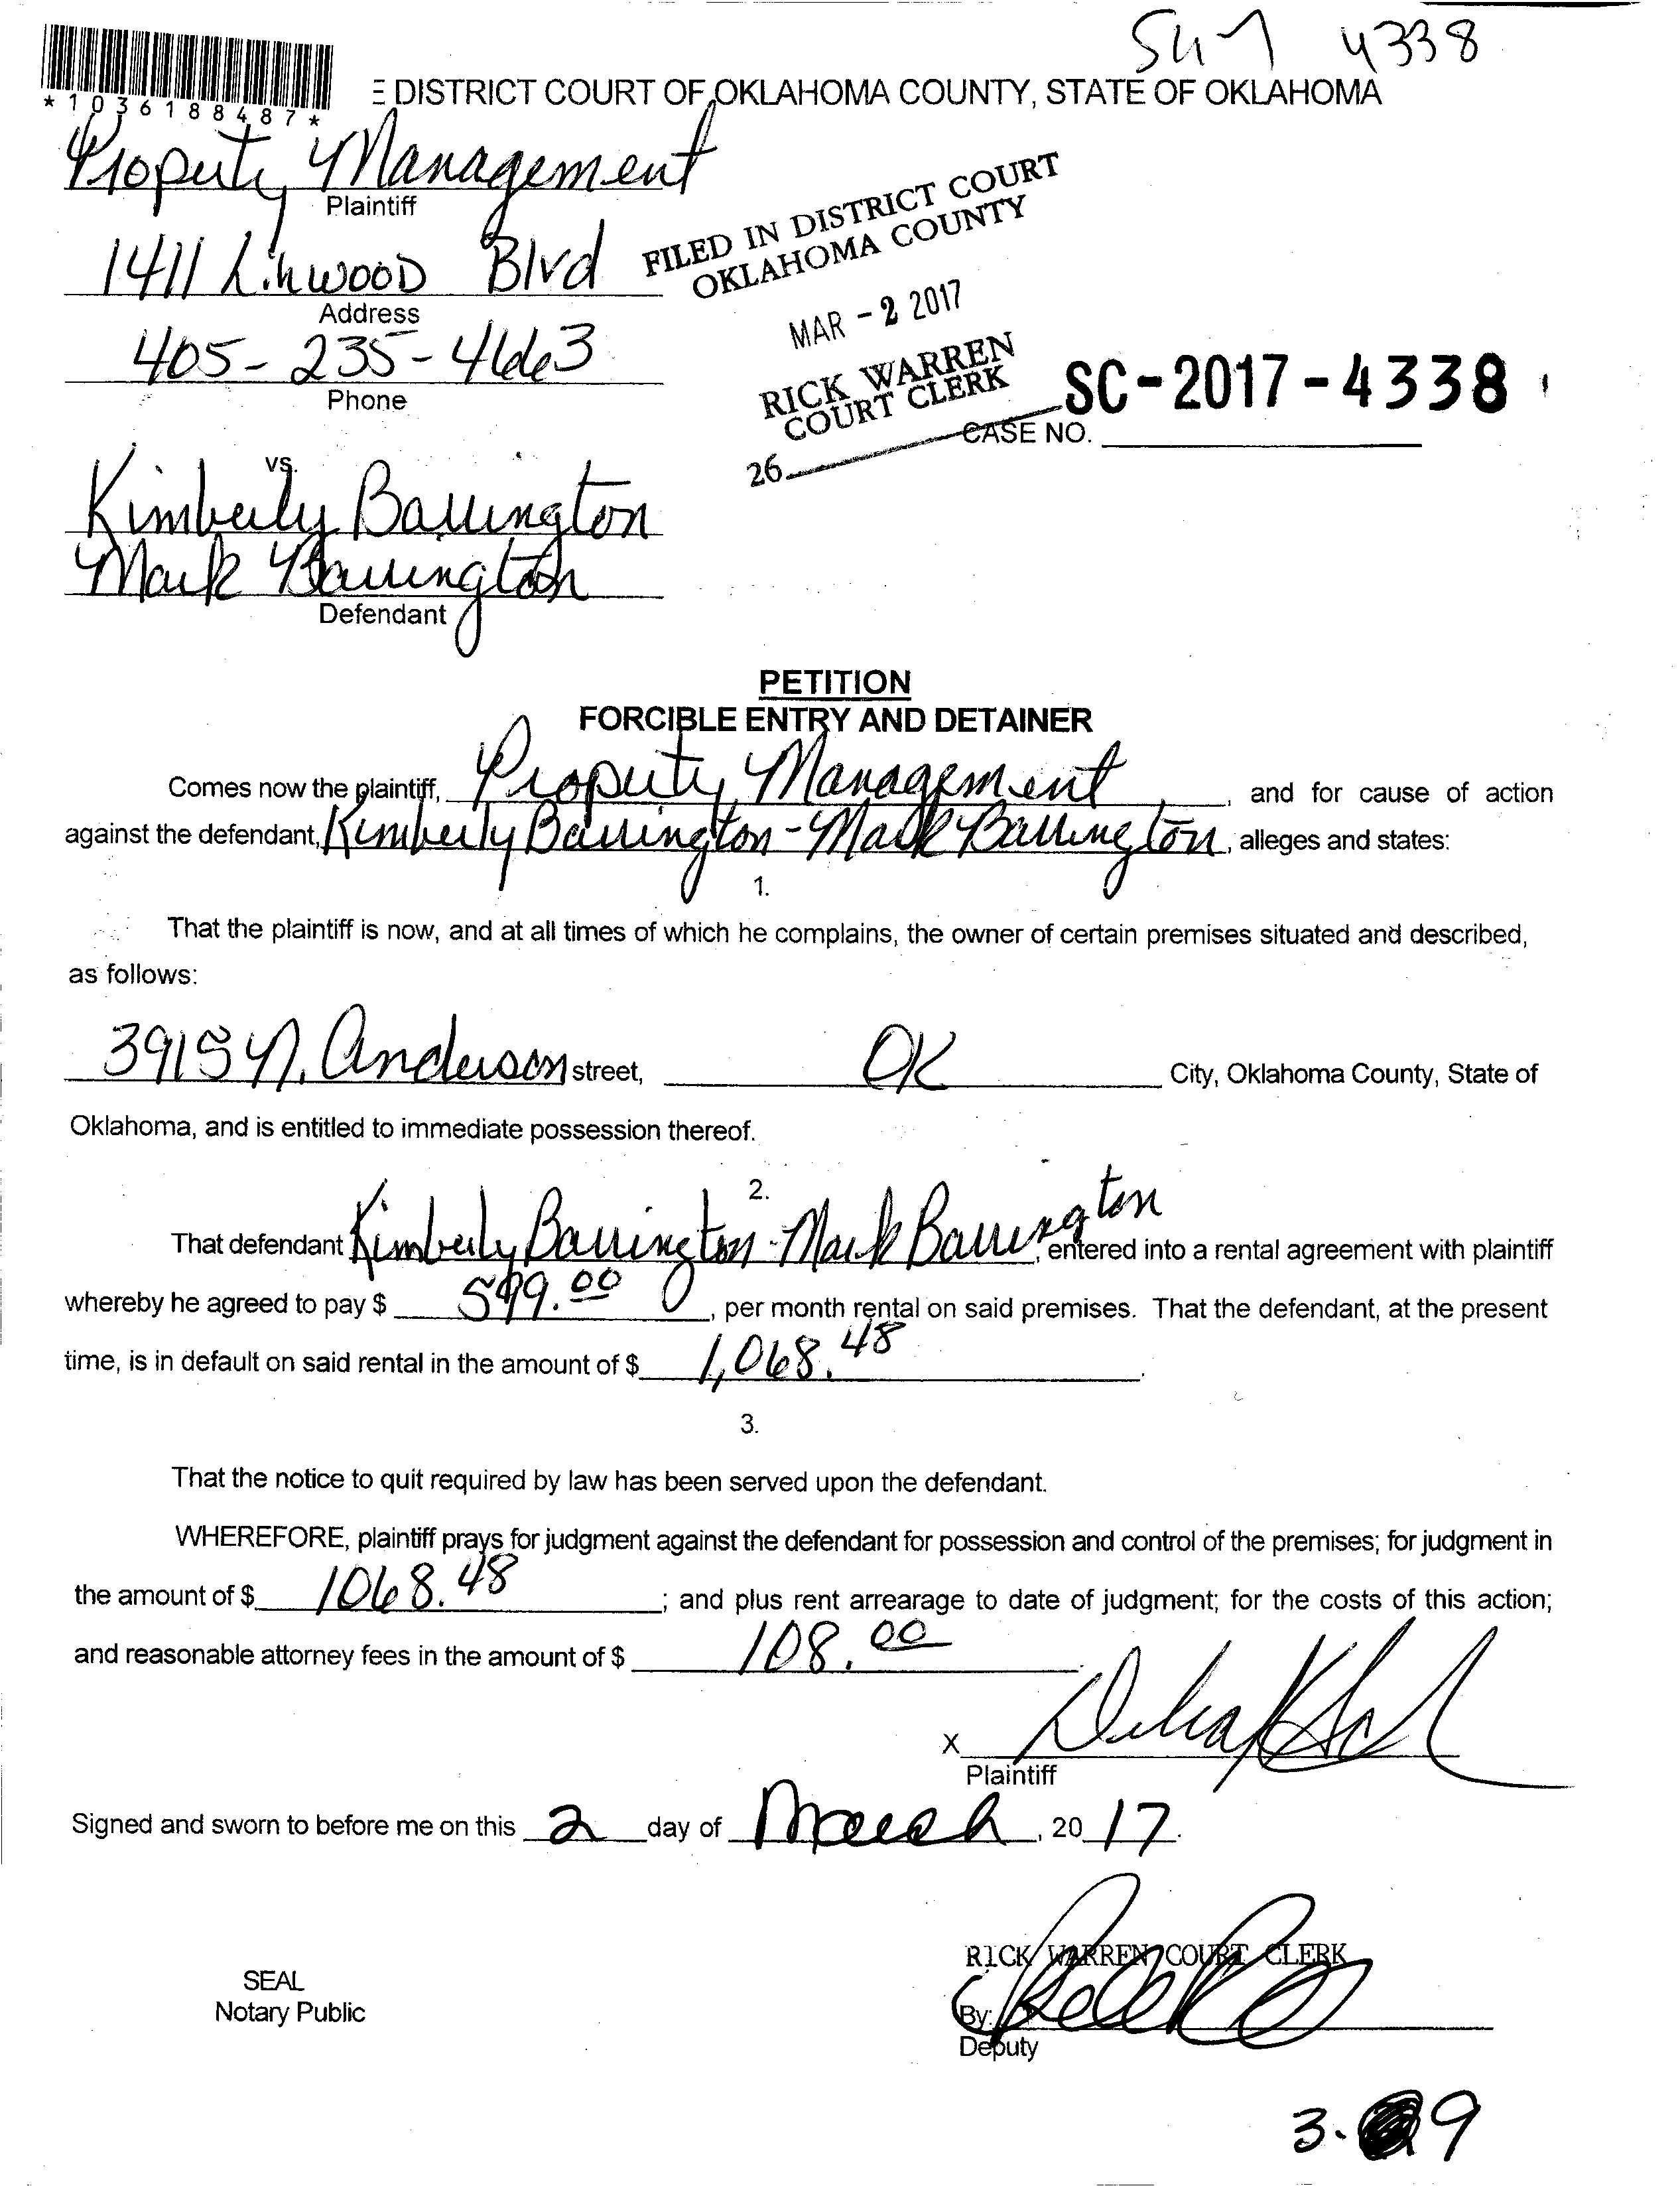 4338
DISTRICT COURT OF OKLAHOMA COUNTY, STATE OF OKLAHOMA
*1036188487*
Property Management
Plaintiff
1411 Linwood Blvd
Address
405-235-4663
Phone
FILED IN DISTRICT COURT
OKLAHOMA COUNTY
MAR - 2 2017
RICK WARREN
COURT CLERK
26
SC-2017-4338
CASE NO.
vs.
Kimberly Barrington
Mark Barrington
Defendant
PETITION
FORCIBLE ENTRY AND DETAINER
Comes now the plaintiff, Property Management, and for cause of action
against the defendant, Kimberly Barrington - Mark Barrington, alleges and states:
1.
That the plaintiff is now, and at all times of which he complains, the owner of certain premises situated and described,
as follows:
3915 N. Anderson street, OK City, Oklahoma County, State of
Oklahoma, and is entitled to immediate possession thereof.
2.
That defendant Kimberly Barrington - Mark Barrington, entered into a rental agreement with plaintiff
whereby he agreed to pay $ 599.00, per month rental on said premises. That the defendant, at the present
time, is in default on said rental in the amount of $ 1,068.48.
3.
That the notice to quit required by law has been served upon the defendant.
WHEREFORE, plaintiff prays for judgment against the defendant for possession and control of the premises; for judgment in
the amount of $ 1068.48; and plus rent arrearage to date of judgment; for the costs of this action;
and reasonable attorney fees in the amount of $ 108.00
X
Plaintiff
Signed and sworn to before me on this 2 day of March, 2017.
RICK WARREN COURT CLERK
SEAL
Notary Public
By:
Deputy
3. 9